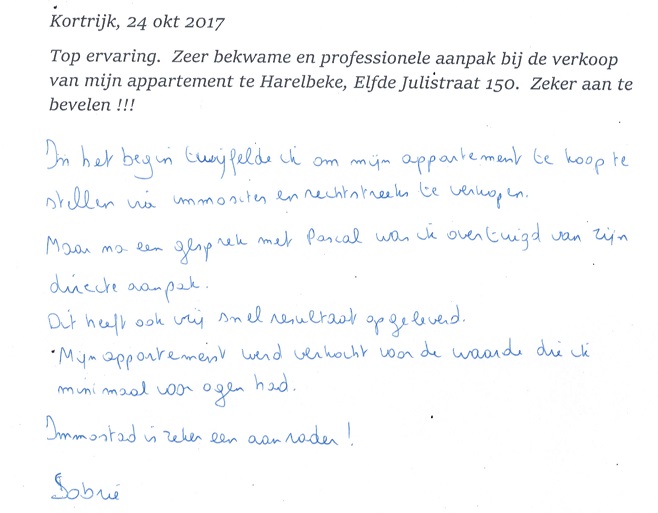 Kortrijk, 24 okt 2017
Top ervaring. Zeer bekwame en professionele aanpak bij de verkoop
van mijn appartement te Harelbeke, Elfde Julistraat 150. Zeker aan te
bevelen !!!
In het begin twijfelde ik om mijn appartement te koop te
stellen via immosites en rechtstreeks te verkopen.
Maar na een gesprek met Pascal was ik overtuigd van zijn
directe aanpak.
Dit heeft ook vrij snel resultaat opgeleverd.
Mijn appartement werd verkocht voor de waarde die ik
minimaal voor ogen had.
Immostad is zeker een aanrader!
Sobrie